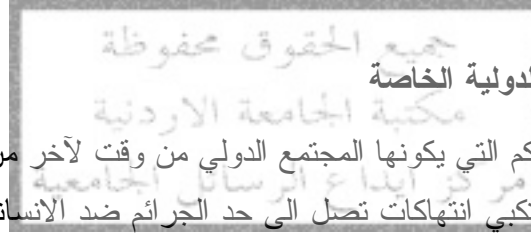 جميع الحقوق محفوظة
الدولية الخاصة
مكتبة الجامعة الاردنية
التي يكونها المجتمع الدولي من وقت لآخر
مركز ايداع الرسائل الجامعية
انتهاكات تصل الى حد الجرائم ضد